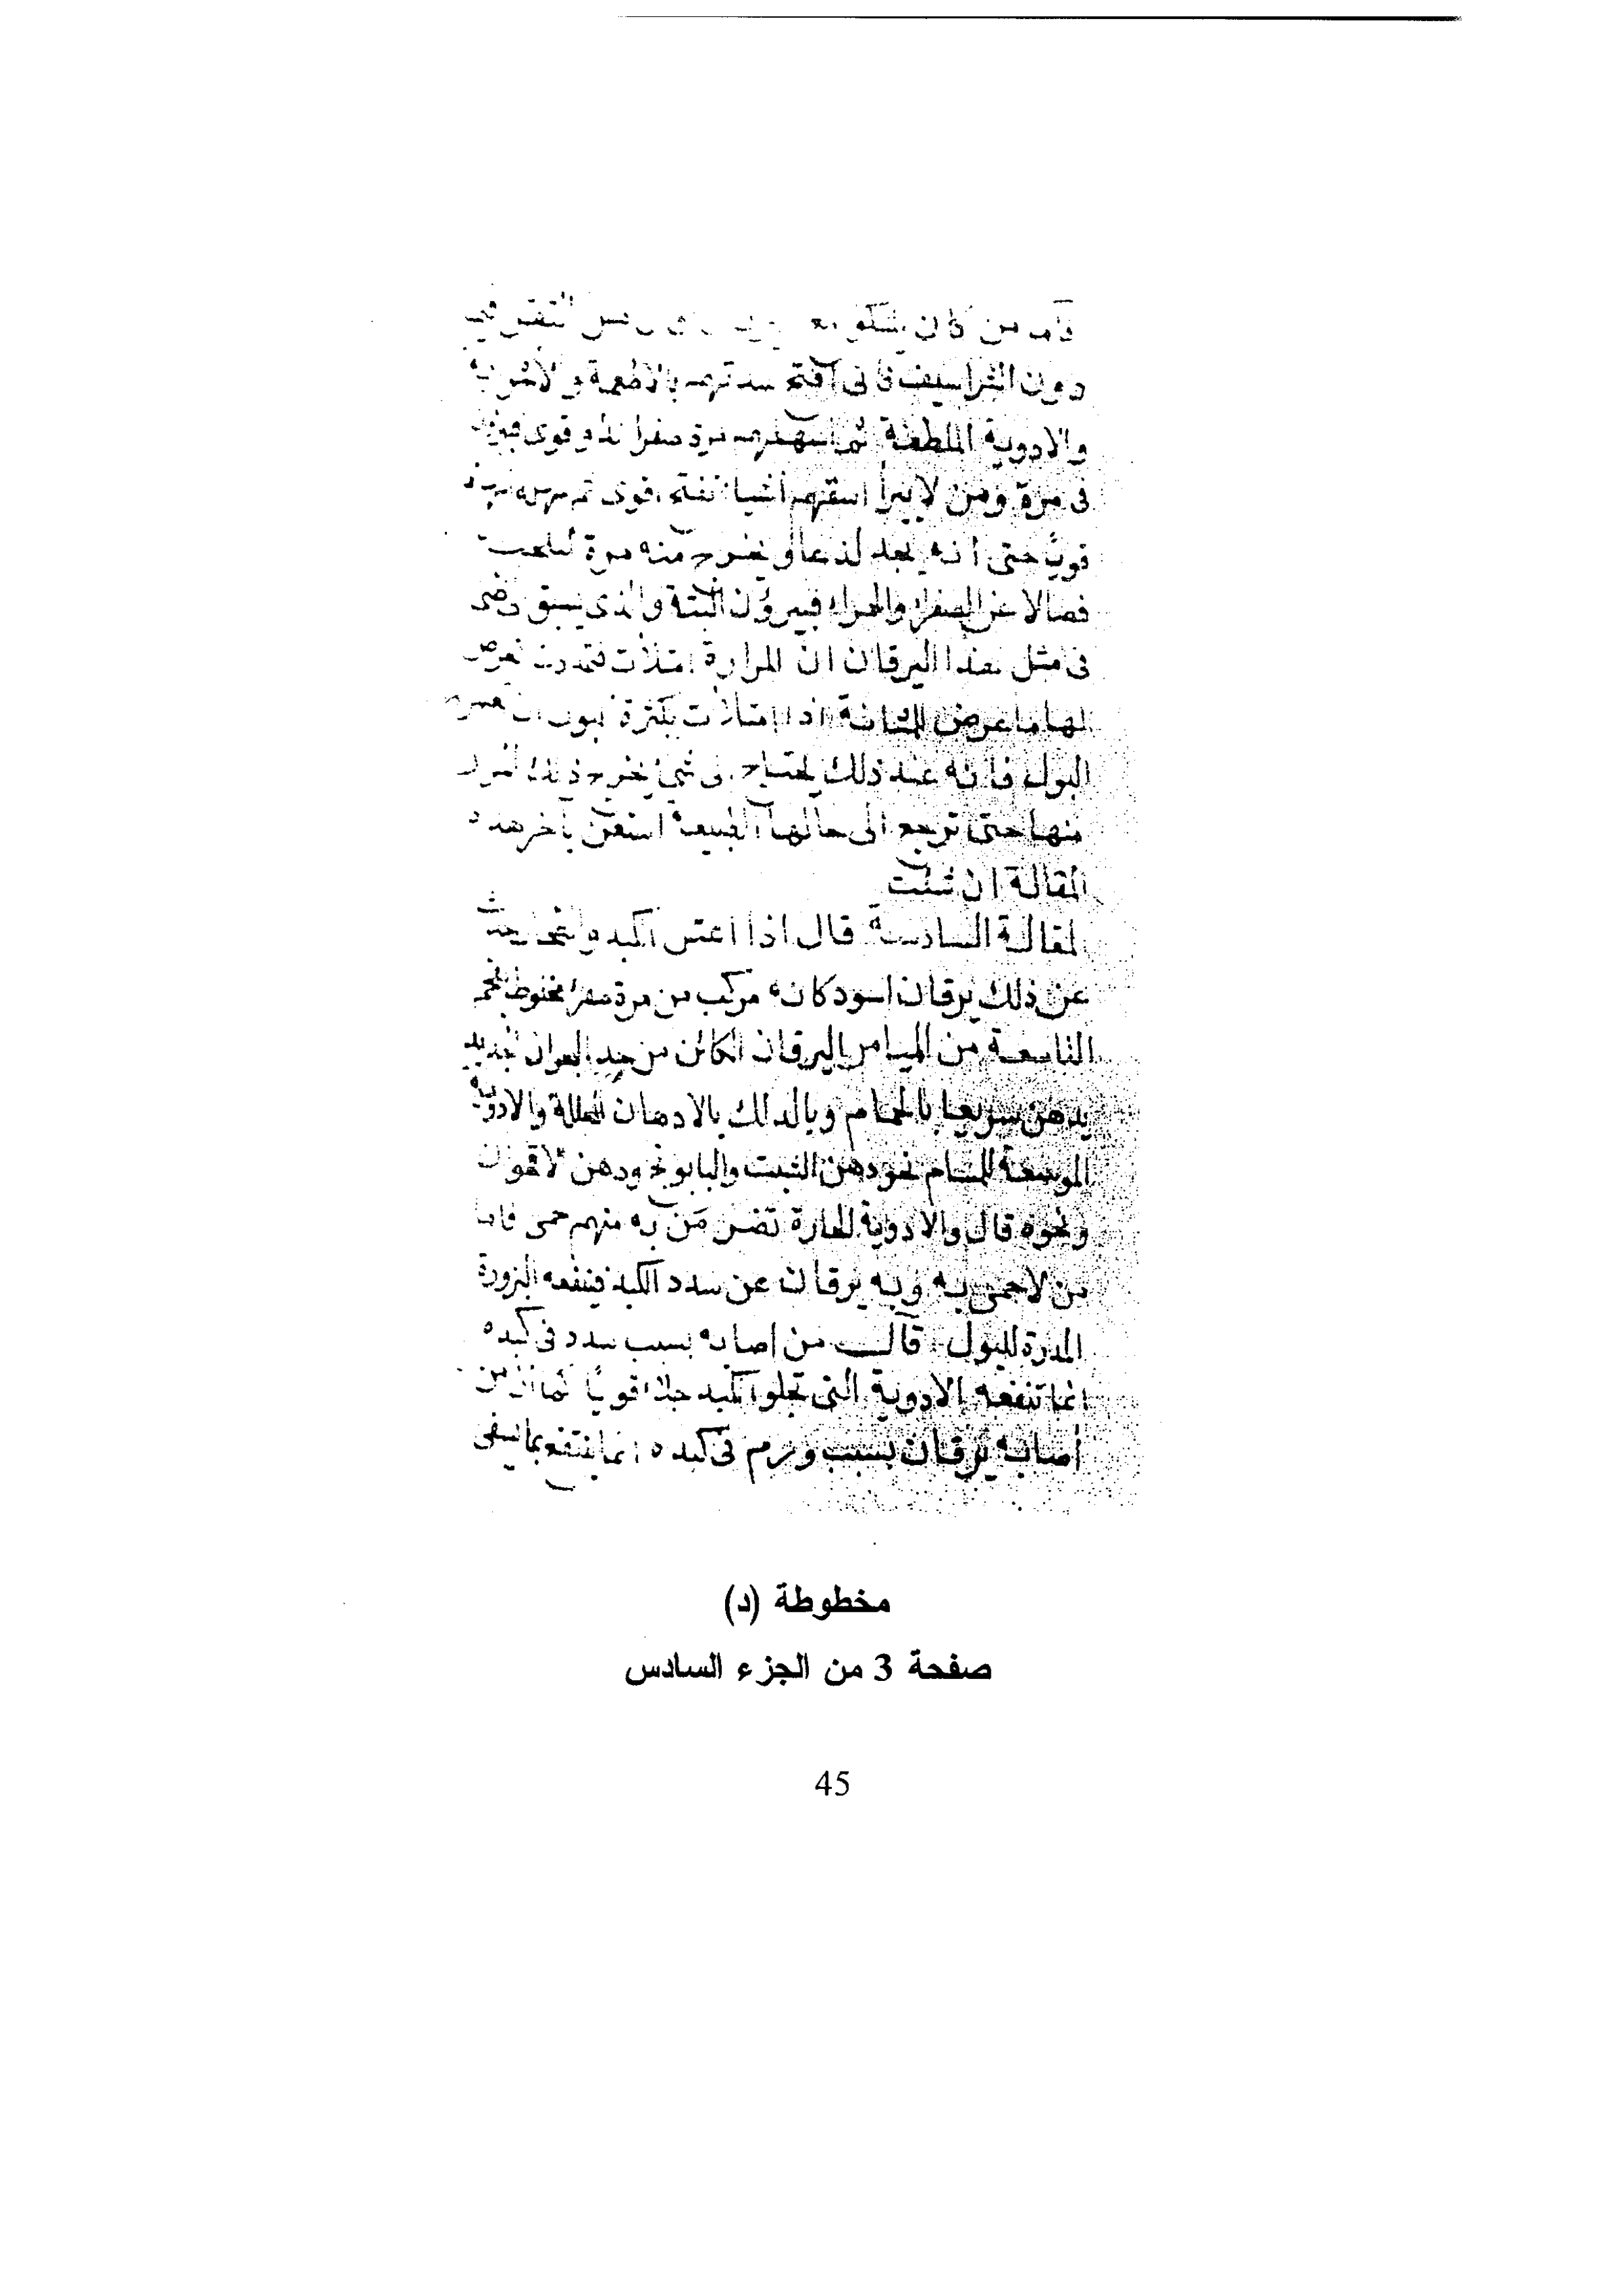 من كان يشكو
دون الشراسيف فانى افتح سدتهم بالاطعمة والاشربة
والادوية الملطفة ثم اسهلهم مرة صفرا بدوا قوى
فى مرة ومن لا يبرأ اسقيهم أشيا تفتح اقوى ثم
قويا حتى انه يجد لذعا و يخرج منه مرة
فضلا عن الصفرا والحمراء فيبروُن البتة والذى يسبق
فى مثل هذا اليرقان ان المرارة امتلأت فتمددت فعرض
لها ما عرض للمثانة اذا امتلأت بكثرة البول ان
البول فانه عند ذلك يحتاج الى شئ يخرج ذلك المرار
منها حتى ترجع الى حالها الطبيعة استعن بآخر هذه
المقالة ان شئت
المقالة السادسة قال اذا اعتس الكبد والطحال يحدث
عن ذلك يرقان اسود كانه مركب من مرة صفرا مخلوط بفحم
التاسعة من الميامر اليرقان الكائن من جيد البحران
يدهن سريعا بالحمام وبالدلك بالادهان المحللة والادوية
الموسعة للمسام نحو دهن الشبت والبابونج ودهن الاقحوان
ونحوه قال والادوية الحارة تضر من به منهم حمى فاما
من لا حمى به وبه يرقان عن سدد الكبد فينفعه البزورة
المدرة للبول قال من اصابه بسبب سدد فى كبده
انما تنفعه الادوية التى تجلو الكبد جلاء قويا كما ان من
أصابه يرقان بسبب ورم فى كبده انما ينتفع بما يشفى
مخطوطة (د)
صفحة 3 من الجزء السادس
45